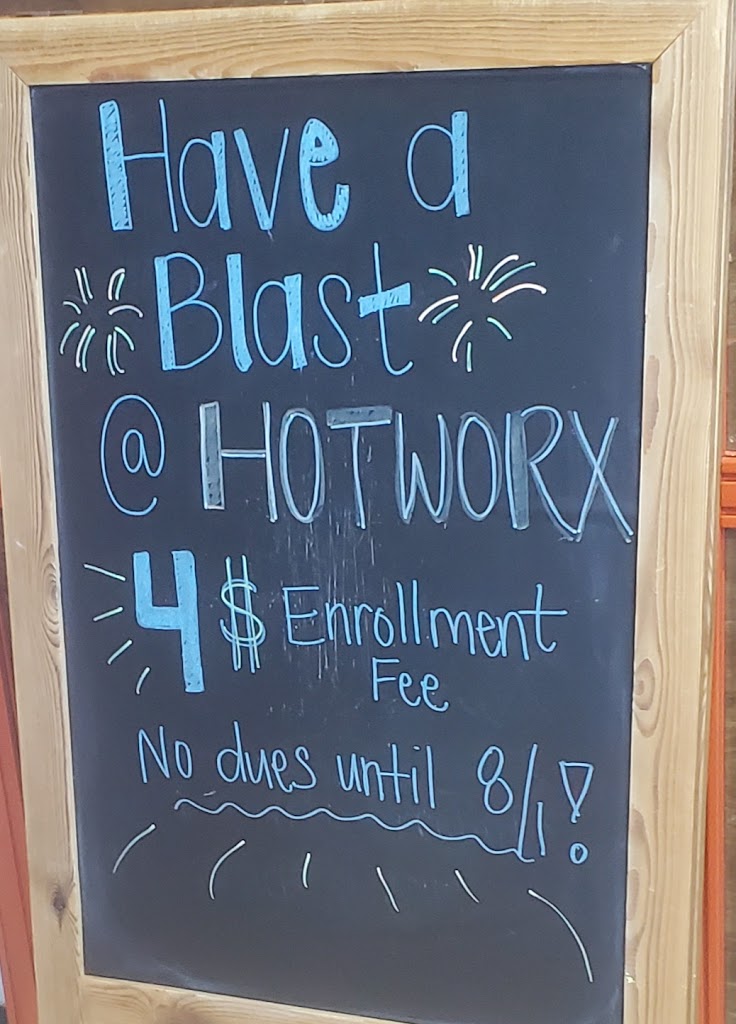 Have a
Blast
@ HOTWORX
4$ Enrollment
Fee
No dues until 8/1!